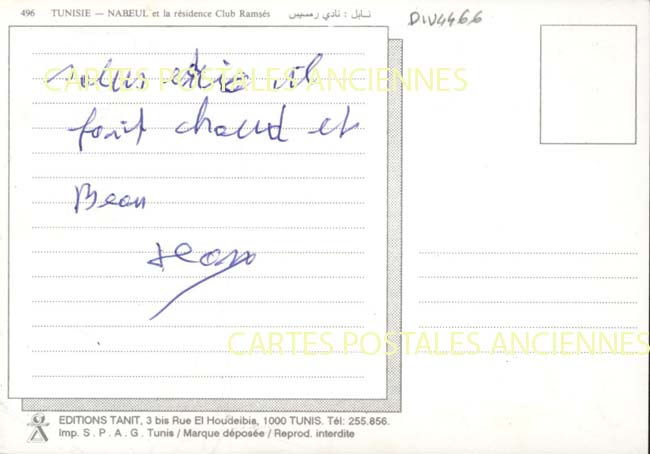 496 TUNISIE — NABEUL et la résidence Club Ramsés نـابل : نادي رمسيس
DIV4466
CARTES POSTALES ANCIENNES
il
fait chaud et
Beau
CARTES POSTALES ANCIENNES
EDITIONS TANIT, 3 bis Rue El Houdeibia, 1000 TUNIS. Tél: 255.856.
Imp. S . P . A . G . Tunis / Marque déposée / Reprod. interdite